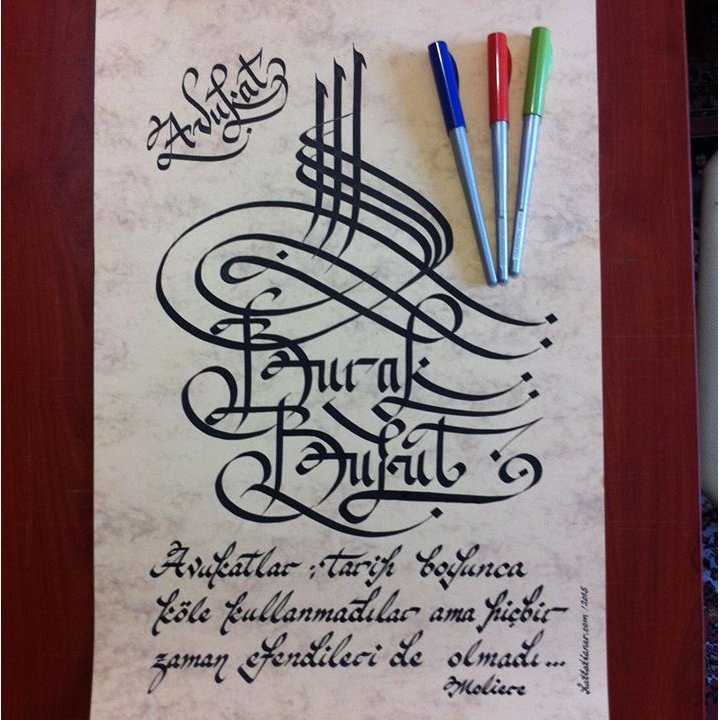 Avukat
Burak
Bulut
Avukatlar ; tarih boyunca
köle kullanmadılar ama hiçbir
zaman efendileri de olmadı...
Moliere